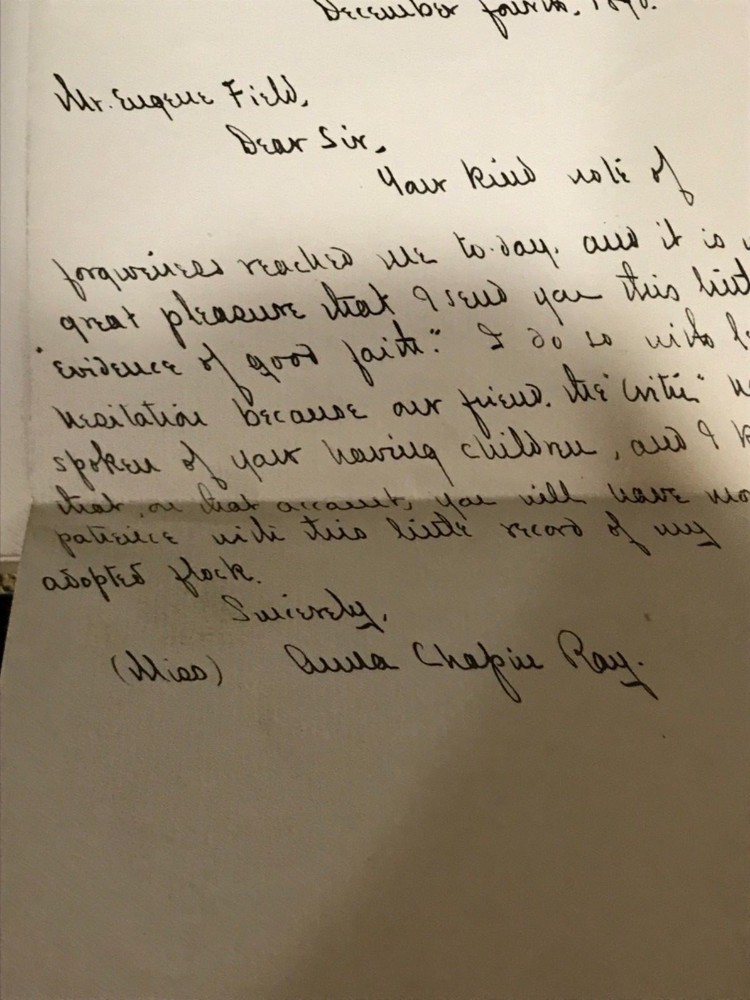 December fourth, 1890.
Mr. Eugene Field,
Dear Sir,
Your kind note of
forgiveness reached me to-day, and it is
great pleasure that I send you this
"evidence of good faith." I do so with
hesitation because our friend, the "Critic"
spoken of your having children, and I
that, on that account, you will have
patience with this little record of my
adopted flock.
Sincerely,
(Miss) Anna Chapin Ray.